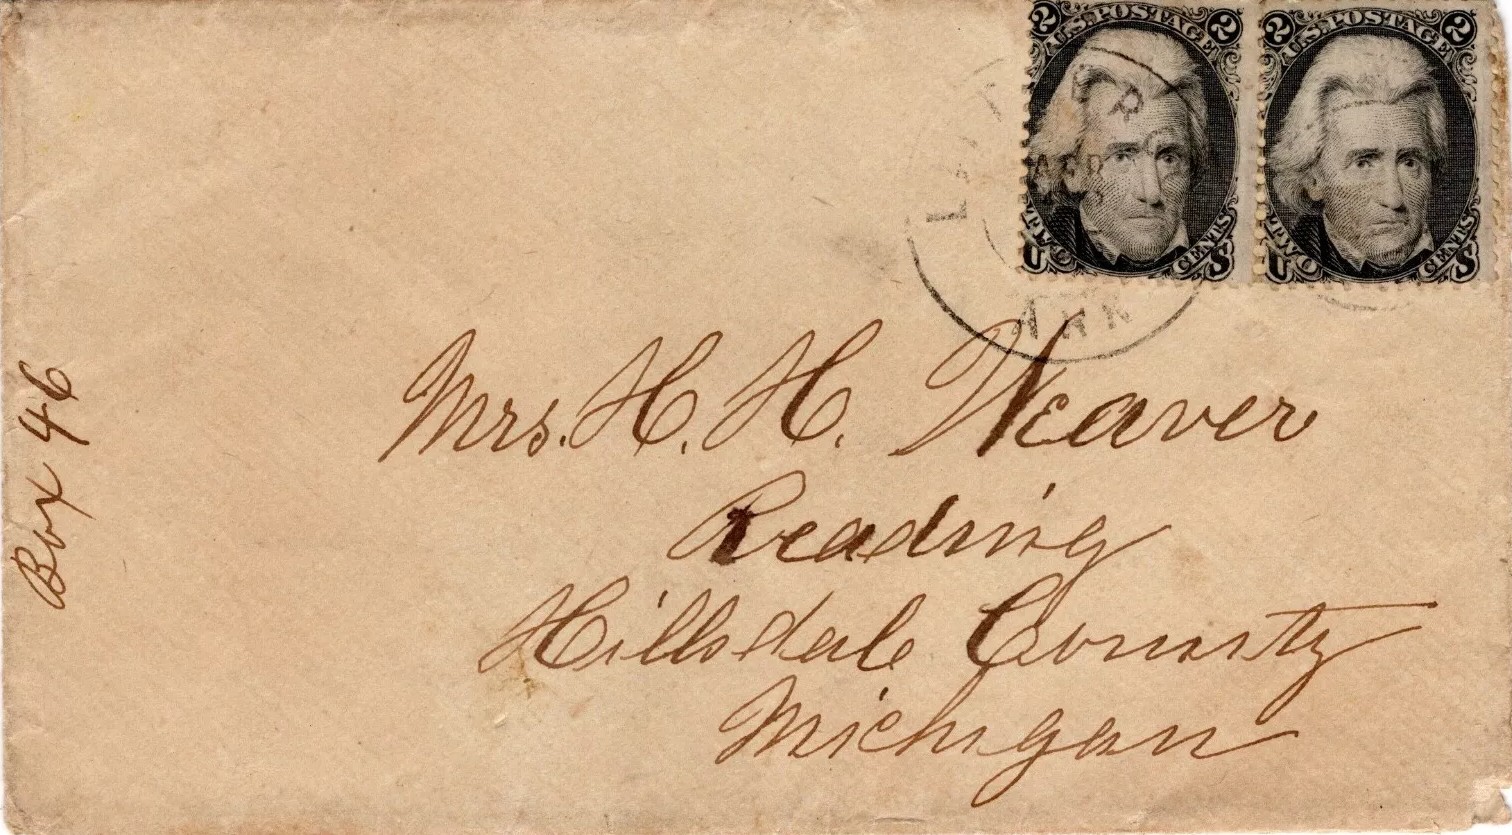 2 U.S. POSTAGE 2
TWO CENTS
U S
2 U.S. POSTAGE 2
TWO CENTS
U S
APR
Mrs. H. H. Weaver
Reading
Hillsdale County
Michigan
Box 46